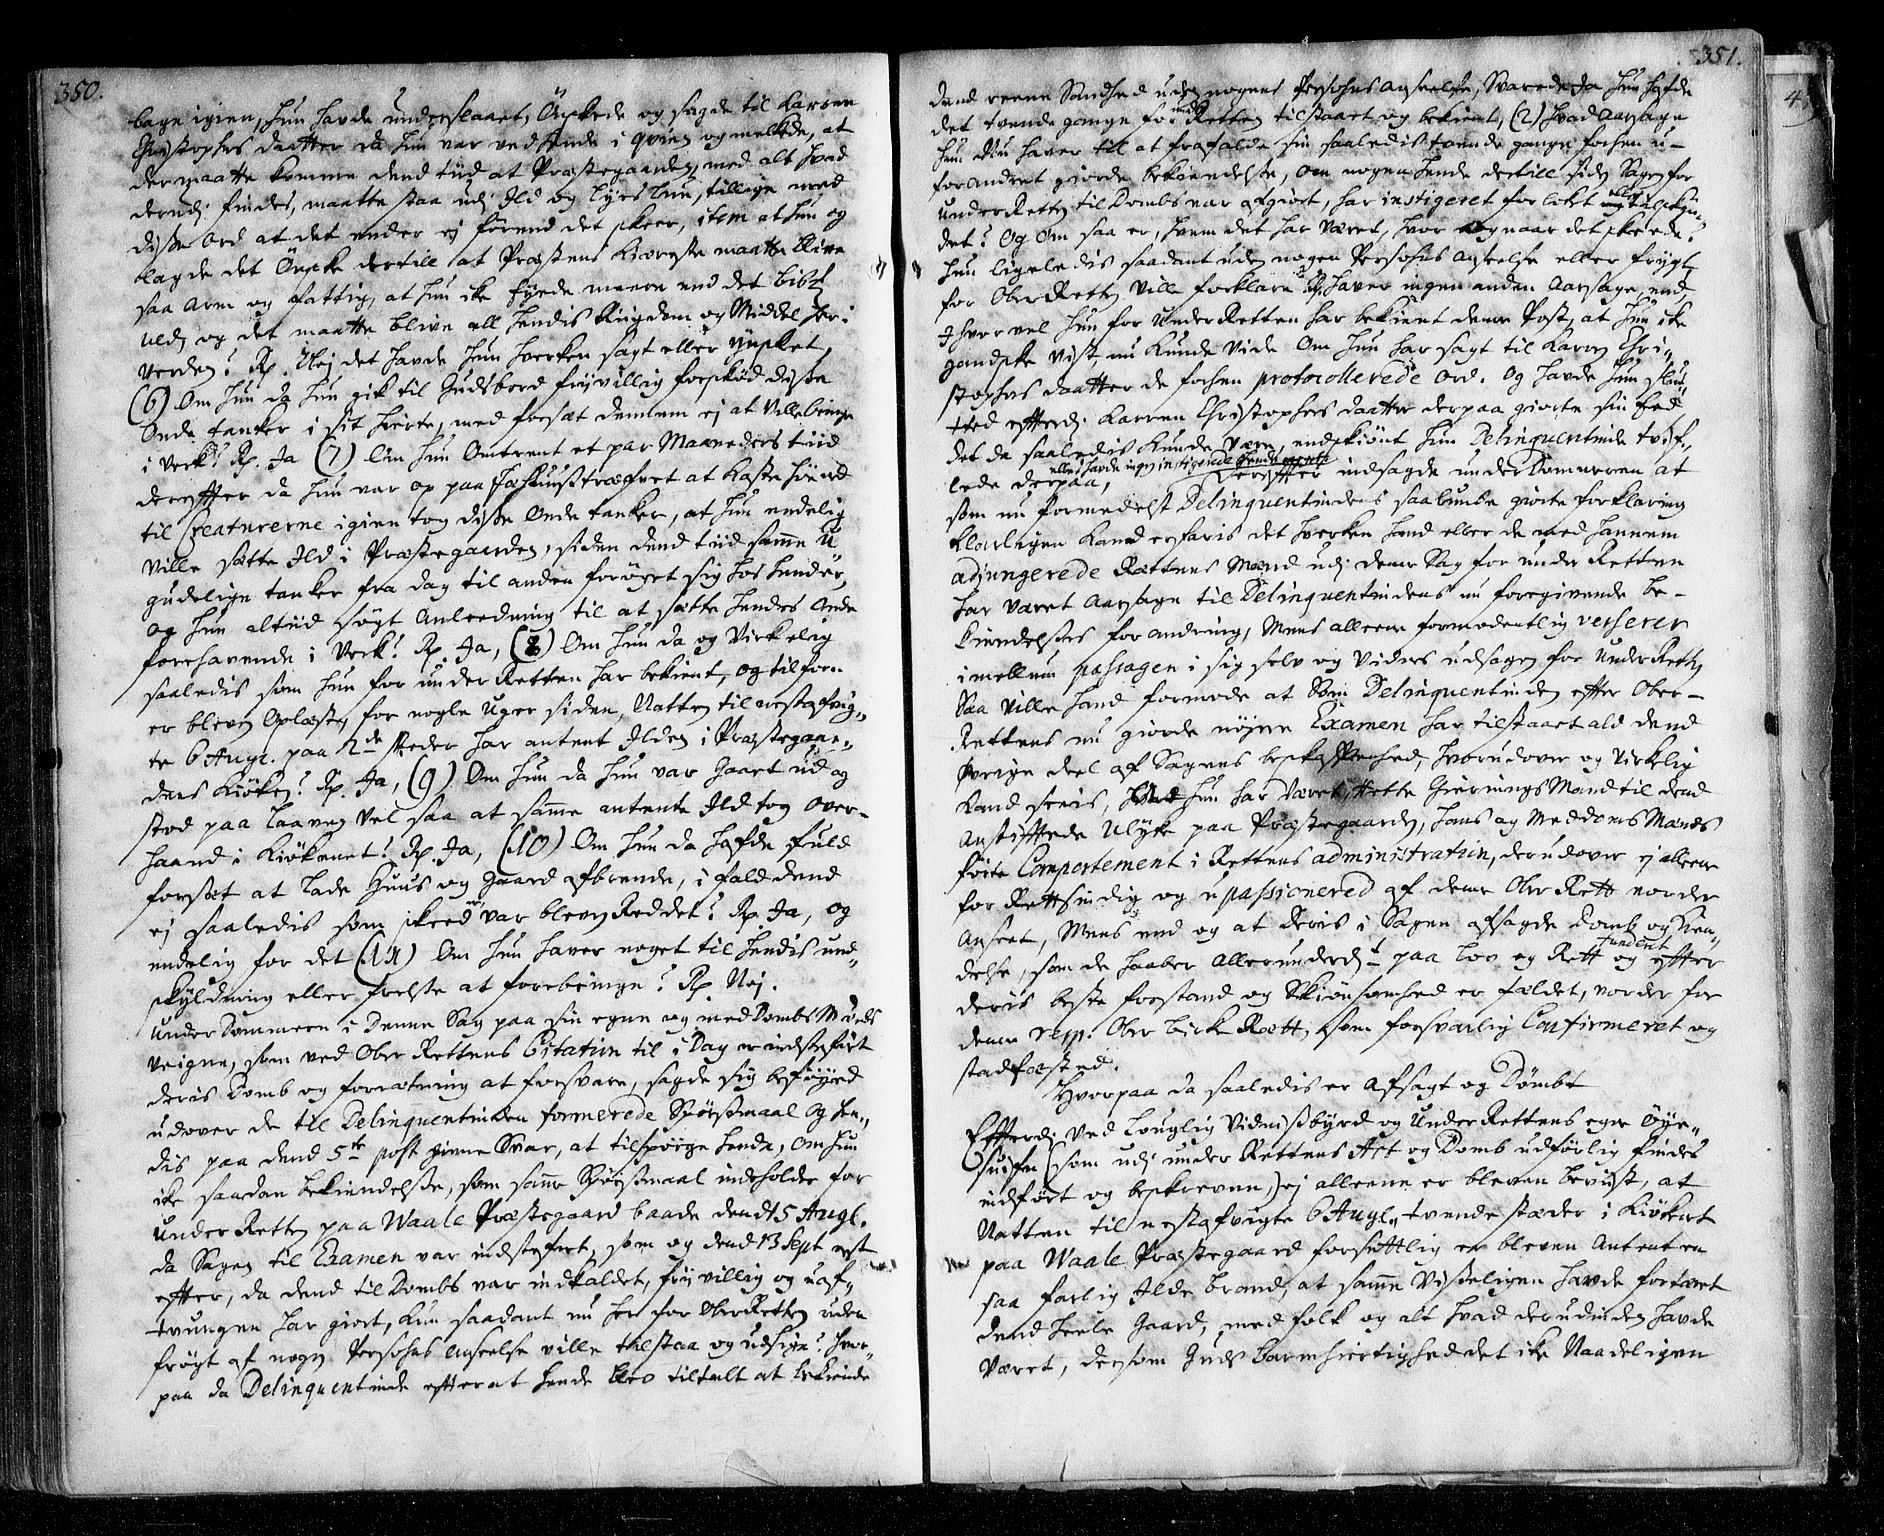 350.
bage igien, hun havde underslaaet, Ønskede og sagde til Karren
Christophers daatter da hun var ved hende i qvien og melkede, at
der maatte komme dend tiid at Præstegaarden, med alt hvad
derudi findes, maatte staa udi Ild og lyes lue, tillige med
disse ord at det ender ej førend det skeer, item at hun og
lagde det Ønske dertill at Præstens Kiæreste maatte blive
saa arm og fattig, at hun ike eyede meere end det bibet
uld, og det maatte blive all hendis Riigdom og Middel her i
verden? Rp. Nej det havde hun hverken sagt eller ynsket,
(6) Om hun da hun gik til Gudsbord friivillig forskiød disse
Onde tanker i sit hierte, med forsæt dennem ej at ville bringe
i verk? Rp. Ja (7) Om hun Omtrent et par Maaneders tiid
dereffter da hun var op paa Fæhuustræfvet at kaste høe ned
til Creaturerne igien tog disse Onde tanker, at hun endelig
ville sætte Ild i Præstegaarden, siden dend tiid samme U-
gudelige tanker fra dag til anden forøget sig hos hender,
og hun altiid søgt Anleedning til at sætte hendes Onde
forehavende i verk? Rp. Ja, (8) Om hun da og virkelig
saaledis som hun for under Retten har bekient, og tilforn
er bleven Oplæst, for nogle Uger siden, Natten til nestafvig-
te 6 Augl. paa 2de stæder har antent Ilden i Præstegaar-
dens Kiøken? Rp. Ja, (9) Om hun da hun var gaaet ud og
stod paa laaven vel saa at samme antente Ild tog over-
haand i Kiøkenet? Rp. Ja, (10) Om hun da hafde fuld
forsæt at lade Huus og gaard afbrende, i fald dend
ej saaledis som skeed er, var bleven Reddet? Rp. Ja, og
endelig for det (11) Om hun haver noget til hendis und-
skyldning eller frelse at forebringe? Rp. Nej.
Under Dommeren i denne Sag paa sin egne og med Doms Mænds
veigne, som ved Ober Rettens Citation til i Dag er indstefnt
deris Domb og forretning at forsvare, sagde sig beføyed
udover de til Delinquentinden formerede Spørsmaal og hen-
dis paa dend 5te post givne Svar, at tilspørge hende, Om hun
ike saadan bekiendelse, som samme Spørsmaal indeholder for
Under Retten paa Waale Præstegaard baade dend 15 Augl.
da Sagen til Examen var indstefnt, som og dend 13 Sept nest
effter, da dend til Dombs var indkaldet, frivillig og uaf-
tvungen har giort, hun saadant nu her for Ober Retten uden
frøgt af nogen Persohns anseelse ville tilstaa og udsige? hvor-
paa da Delinquentinde effterat hende blev tiltalt at bekiende
351.
dend reene Sandhed uden nogens Persohns anseelse, Svarede Ja hun hafde
det tvende gange for under Retten tilstaaet og bekient, (2) hvad aarsage
hun Nu haver til at frafalde sin saaledis tvende gange forhen u-
forandret giorde bekiendelse, om nogen hende dertill siden Sagen for
Under Retten til Dombs var afgiort, har instigeret forlokt eller tilskyn-
det? Og Om saa er, hvem det har været, hvor og naar det skeede?
hun ligeledis saadant uden nogen Persohns anseelse eller frygt
for Ober Retten ville forklare? Rp. Haver ingen anden Aarsage, end
I hvor vel hun for Under Retten har bekient denne Post, at hun ike
gandske vist nu kunde vide Om hun har sagt til Karen Chri-
stophers daatter de forhen protocollerede ord. Og havde hun slut-
ted effterdi Karren Christophers daatter derpaa giorte sin Eed
det da saaledis kunde være, endskiønt hun Delinquentinde tvif-
lede derpaa, eller havde ingen instigerede hende
Dereffter indsagde under Dommeren at
som nu formedelst Delinquentindens saalunde giorte forklaring
klarligen kand erfaris det hverken hand eller de med hannem
adjungerede Rettens Mænd udi denne Sag for under Retten
har været Aarsage til Delinquentindens nu foregivende be-
kiendelses forandring, Mens alleene formodentlig verserer
imellem passagen i sig selv og viidnes udsagen for under Retten
Saa ville hand formode at Som Delinquentinden effter Ober-
Rettens nu giorde nøyere Examen har tilstaaet ald dend
øvrige deel af Sagens beskaffenhed, hvorudover og virkelig
kand sees, at hun har været rette Gierningsmand til dend
anstifftede Ulyke paa Præstegaarden, hans og Meddoms Mænds
førte Comportement i Rettens administration, derudover ej alleene
for Rettsindig og upassionered af denne Ober Rett vorder
Anseet, Mens end og at deris i Sagen afsagde Domb og Kien-
delse, som de haaber allerunderd: paa lov og Rett funderet og effter
deris beste forstand og Skiønsomhed er fældet, vorder for
denne resp. Ober birke Rett, som forsvarlig Confirmeret og
stadfæsted.
Hvorpaa da saaledis er afsagt og Dømbt
Effterdi ved Louglig Vidnisbyrd og Under Rettens egne øye-
suifn (som udi under Rettens Act og Domb udførlig findes
indført og beskreven,) ej alleene er bleven beviist, at
Natten til nestafvigte 6 Augl. tvende stæder i Kiøkenet
paa Waale Præstegaard forsettlig er bleven Antent en
saa farlig Ildebrand, at samme visseligen havde fortæret
dend heele Gaard, med folk og alt hvad derudinden havde
været, dersom Guds barmhiertighed det ike Naadeligen